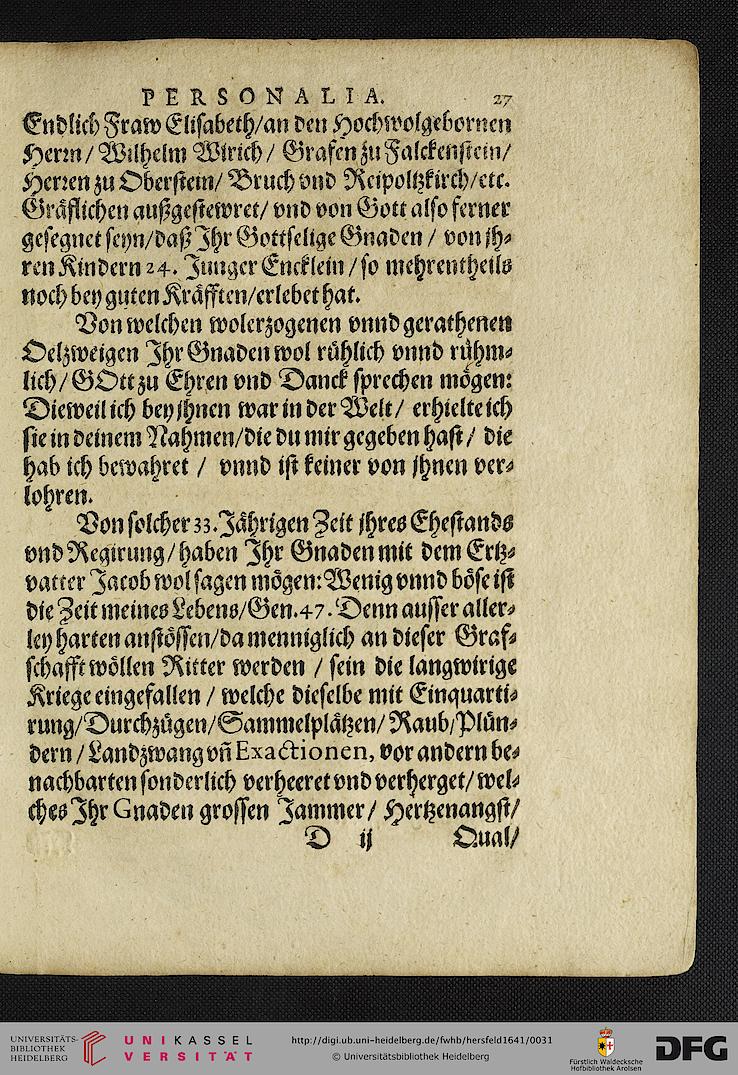 PERSONALIA. 27
Endlich Fraw Elisabeth/an den Hochwolgebornen
Herrn/ Wilhelm Wirich/ Grafen zu Falckenstein/
Herren zu Oberstein/ Bruch vnd Reipoltzkirch/etc.
Gräflichen außgestewret/ vnd von Gott also ferner
gesegnet seyn/daß Ihr Gottselige Gnaden / von jh⸗
ren Kindern 24. Junger Encklein / so mehrentheils
noch bey guten Kräfften/erlebet hat.
Von welchen wolerzogenen vnnd gerathenen
Oelzweigen Ihr Gnaden wol rühlich vnnd rühm⸗
lich/ GOtt zu Ehren vnd Danck sprechen mögen:
Dieweil ich bey jhnen war in der Welt/ erhielte ich
sie in deinem Nahmen/die du mir gegeben hast/ die
hab ich bewahret / vnnd ist keiner von jhnen ver⸗
lohren.
Von solcher 33. Jährigen Zeit jhres Ehestands
vnd Regirung/ haben Ihr Gnaden mit dem Ertz⸗
vatter Jacob wol sagen mögen: Wenig vnnd böse ist
die Zeit meines Lebens/Gen. 47. Denn ausser aller⸗
ley harten anstössen/da menniglich an dieser Graf⸗
schafft wöllen Ritter werden / sein die langwirige
Kriege eingefallen / welche dieselbe mit Einquarti⸗
rung/Durchzügen/Sammelplätzen/ Raub/Plün⸗
dern / Landzwang vñ Exactionen, vor andern be⸗
nachbarten sonderlich verheeret vnd verherget/ wel⸗
ches Ihr Gnaden grossen Jammer/ Hertzenangst/
D ij Qual/
UNIVERSITÄTS-
BIBLIOTHEK
HEIDELBERG
UNIKASSEL
VERSITÄT
http://digi.ub.uni-heidelberg.de/fwhb/hersfeld1641/0031
© Universitätsbibliothek Heidelberg
Fürstlich Waldecksche
Hofbibliothek Arolsen
DFG